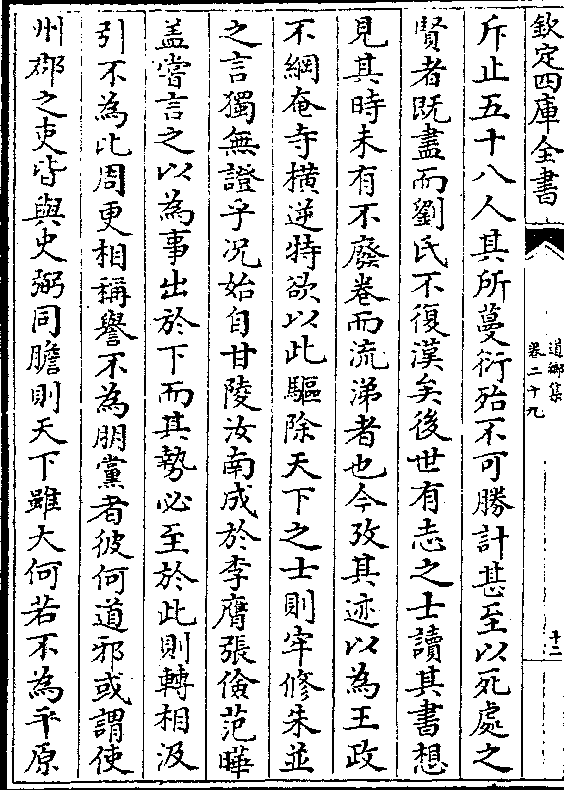 欽定四庫全書
道鄉集
卷二十九
十二
斥止五十八人其所蔓衍殆不可勝計甚至以死處之
賢者既盡而劉氏不復漢矣後世有志之士讀其書想
見其時未有不廢卷而流涕者也今攷其迹以為王政
不綱奄寺橫逆特欲以此驅除天下之士則牢修朱並
之言獨無證乎况始自甘陵汝南成於李膺張儉范曄
盖嘗言之以為事出於下而其勢必至於此則轉相汲
引不為比周更相稱譽不為朋黨者彼何道邪或謂使
州郡之吏皆與史弼同膽則天下雖大何若不為平原